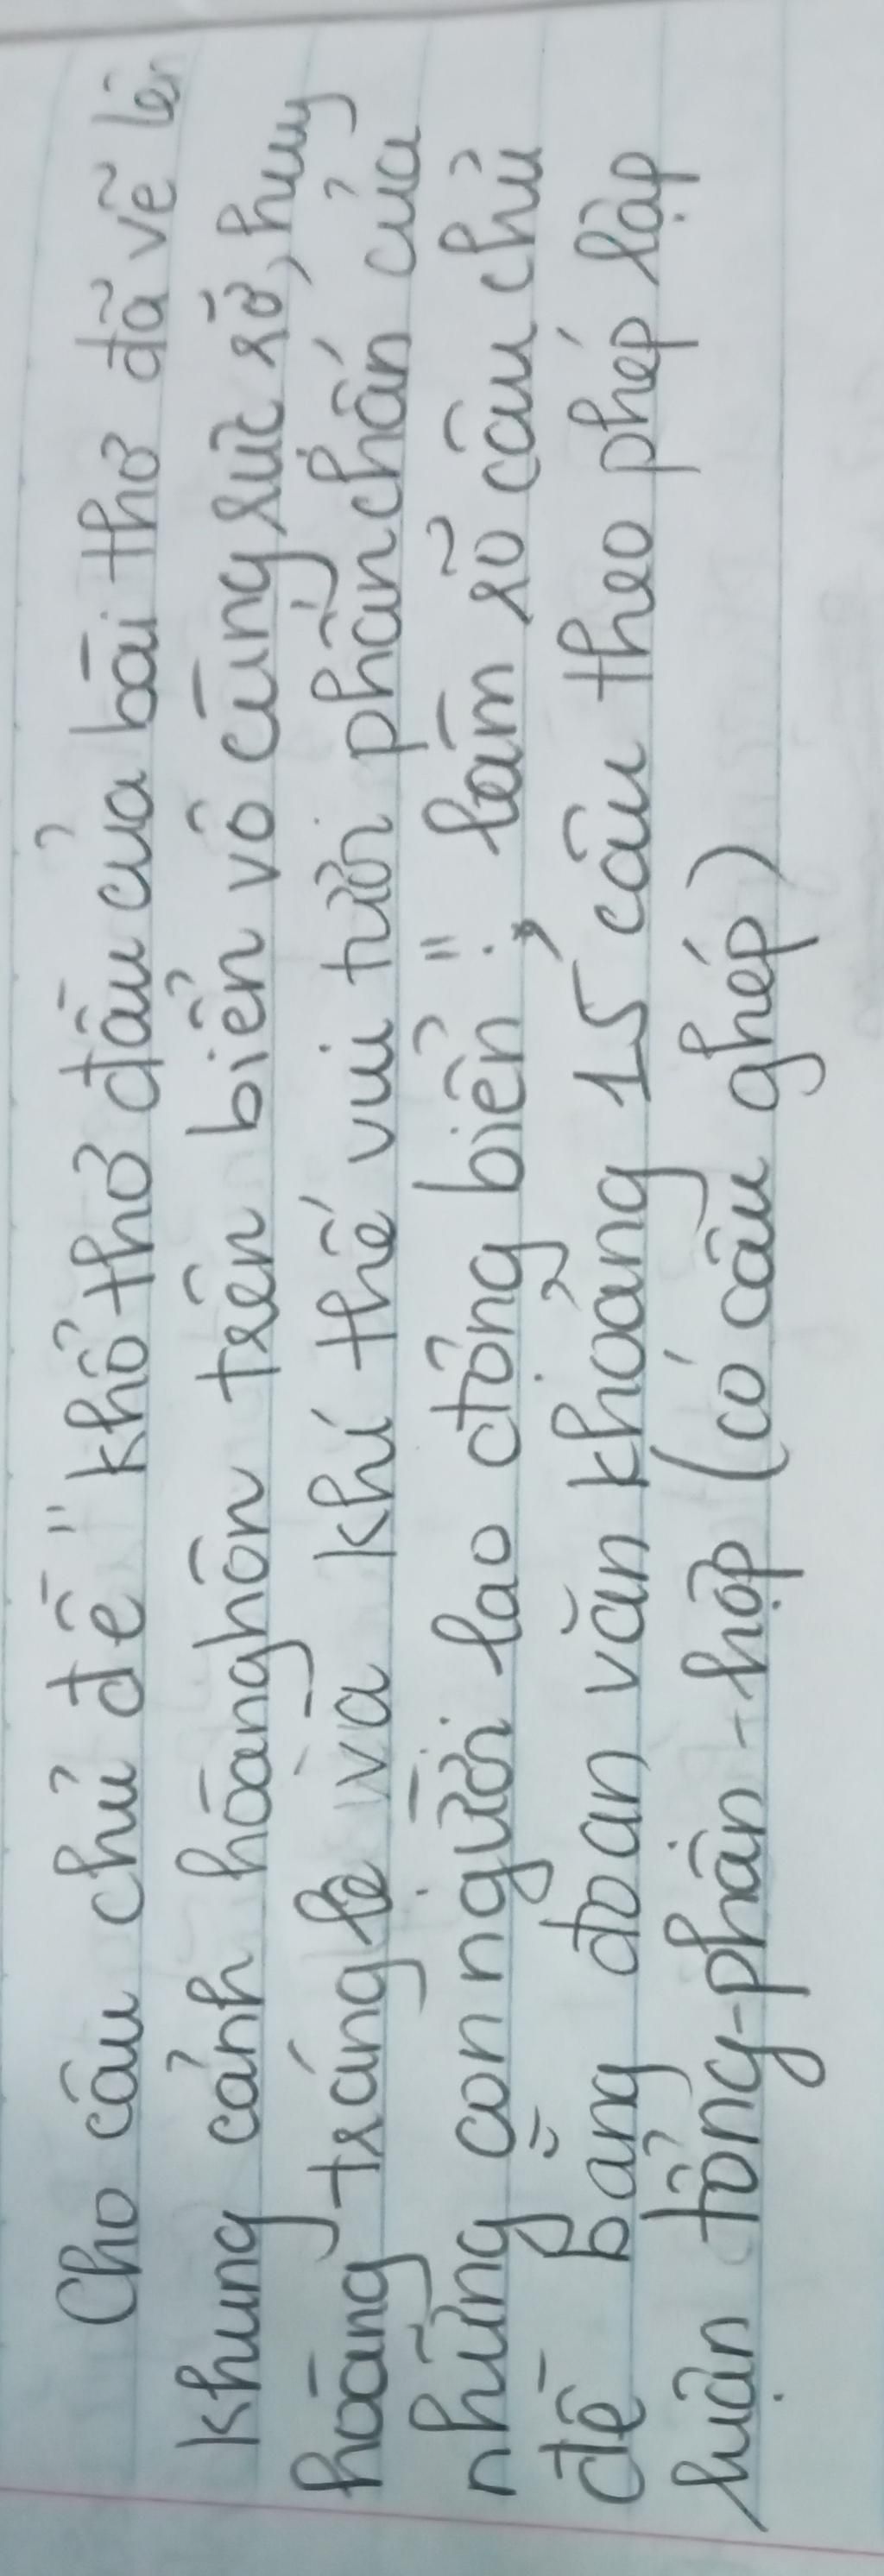 Cho câu chủ đề "khổ thơ đầu của bài thơ đã vẽ lên
khung cảnh hoàng hôn trên biển vô cùng rực rỡ, huy
hoàng tráng lệ và khí thế vui tươi phấn chấn của
những con người lao động biển", làm rõ câu chủ
đề bằng đoạn văn khoảng 15 câu theo phép lập
luận tổng-phân-hợp (có câu ghép)